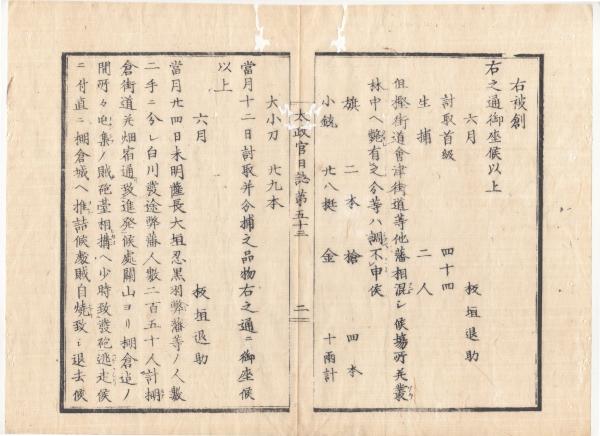 右被創
右之通御座候以上
六月　板垣退助
討取首級　四十四
生捕　二人
但棚街道會津街道等他藩相混シ候場所并叢
林中ヘ斃有之分等ハ調不申候
旗　二本　槍　四本
小銃　廿八挺　金　十兩計
太政官日誌第五十三　二
大小刀　廿九本
當月十二日討取并分捕之品物右之通ニ御座候
以上
六月　板垣退助
當月廿四日未明薩長大垣忍黒羽弊藩等ノ人數
二手ニ分レ白川發途弊藩人數二百五十人計棚
倉街道并畑宿通致進發候處關山ヨリ棚倉迄ノ
間所々屯集ノ賊砲臺相搆ヘ少時致發砲逃走候
ニ付直ニ棚倉城ヘ推詰候處賊自燒致シ退去候